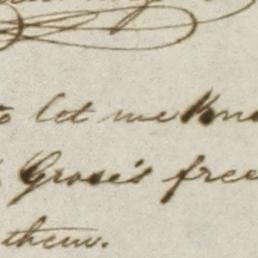 to let me Kno
Grose's free
them.